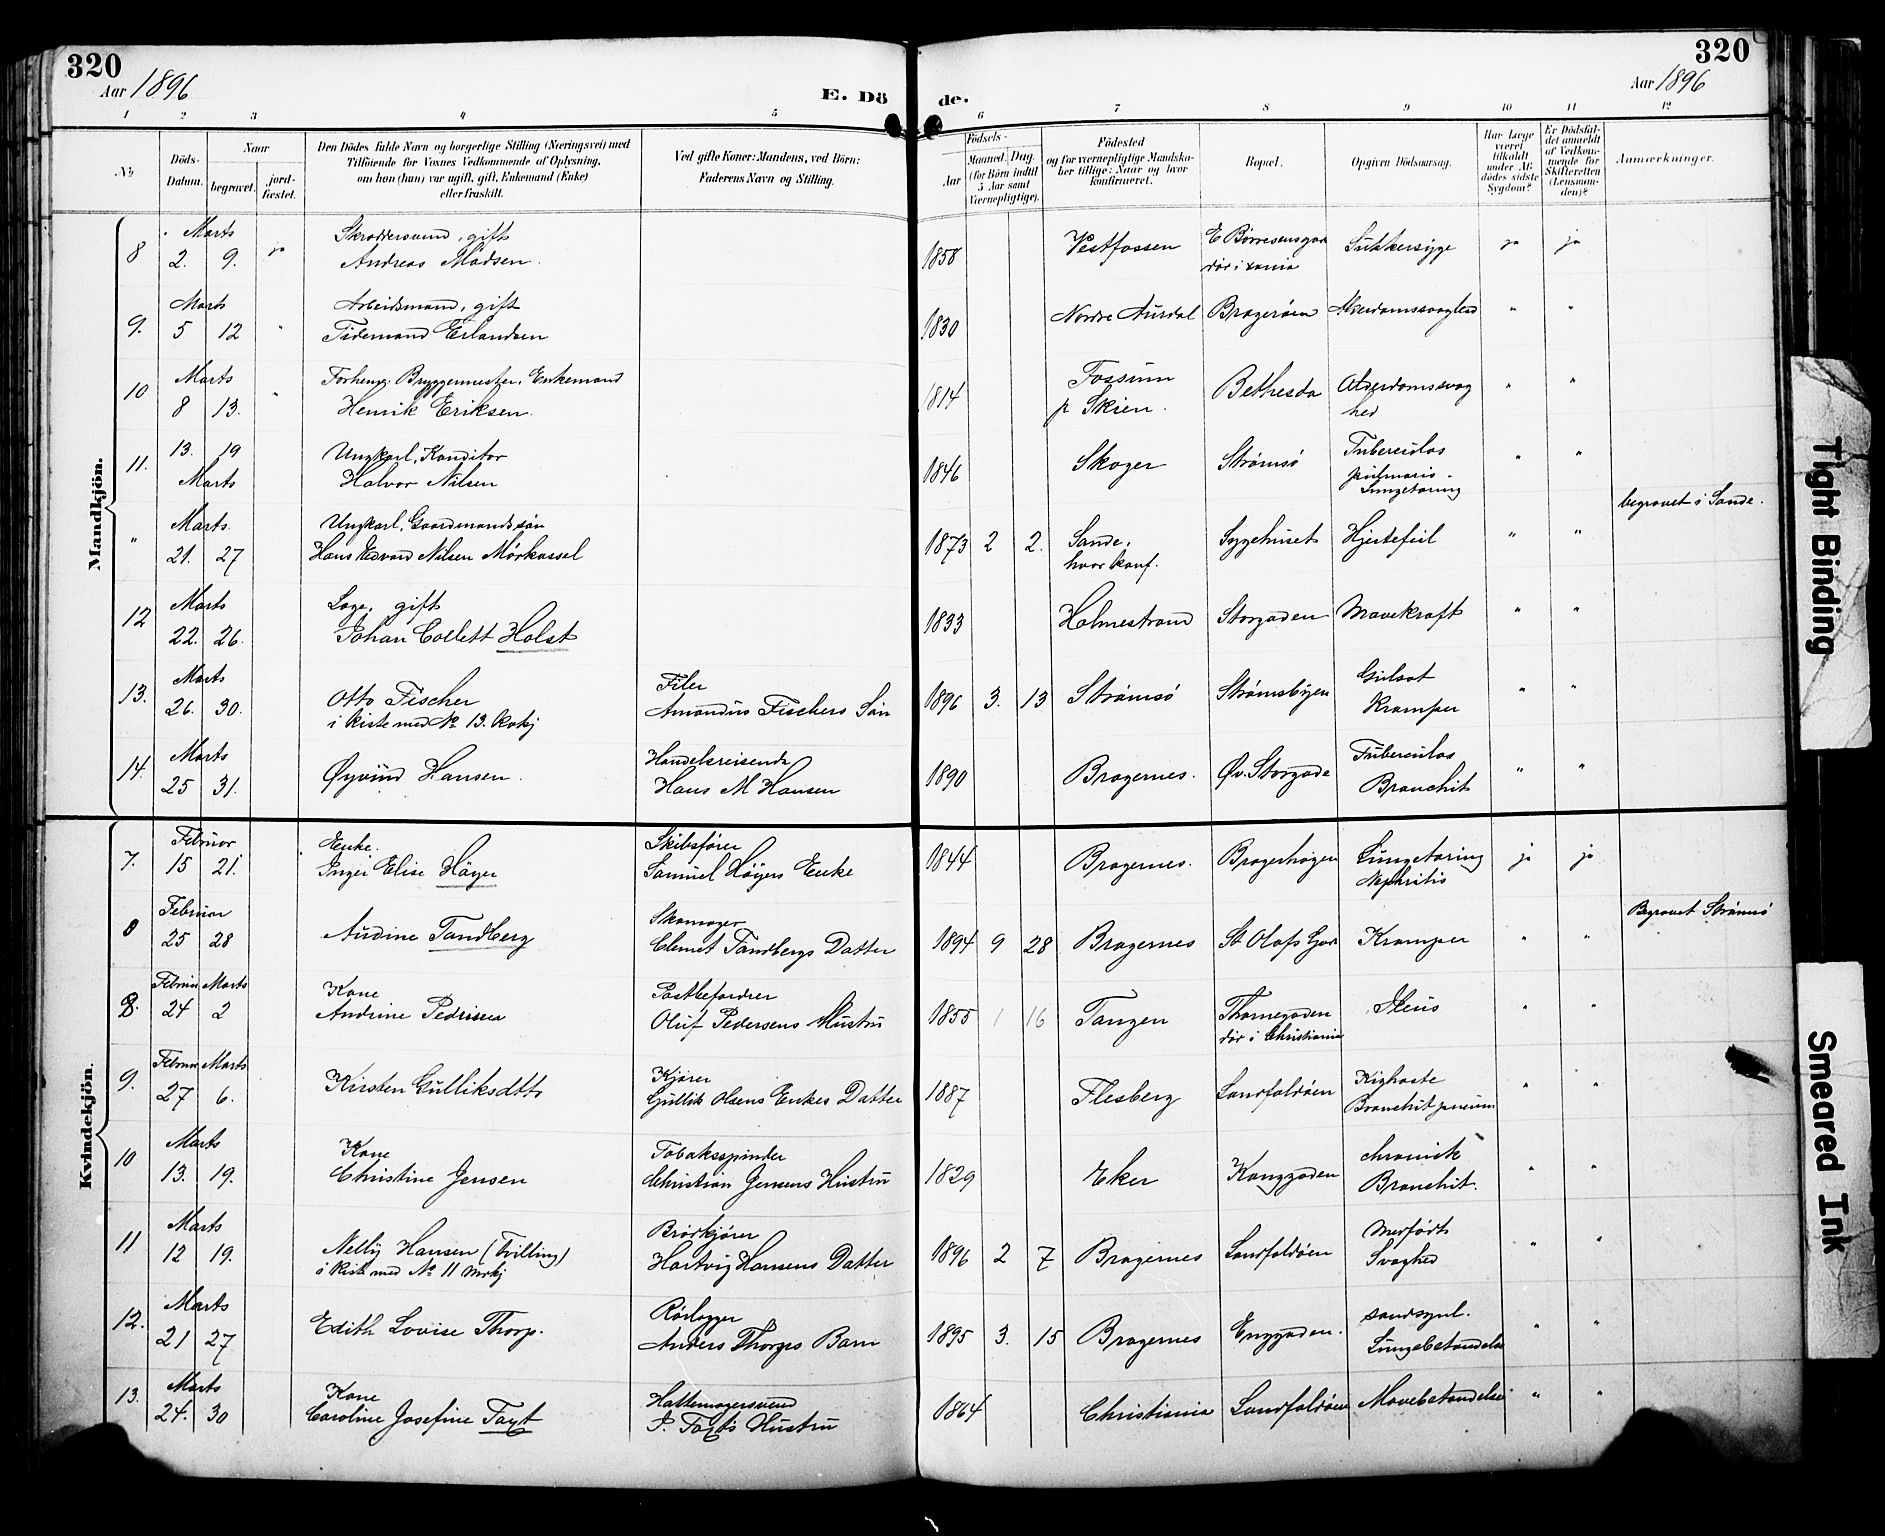 320
Aar 1896
E. Dö
de.
320
Aar 1896
1 2 3 4 5 6 7 8 9 10 11 12
No
Döds-Datum.
Naar
begravet.
jord-fæstet.
Den Dödes fulde Navn og borgerlige Stilling (Næringsvei) med
Tilföiende for Voxnes Vedkommende af Oplysning,
om han (hun) var ugift, gift, Enkemand (Enke)
eller fraskilt.
Ved gifte Koner: Mandens, ved Börn:
Faderens Navn og Stilling.
Födsels-
Aar
Maaned. Dag.
(for Börn indtil
5 Aar samt
Værnepligtige).
Födested
og for værnepligtige Mandska-
ber tillige: Naar og hvor
konfirmeret.
Bopæl.
Opgiven Dödsaarsag.
Har Læge
været
tilkaldt
under Af-
dödes sidste
Sygdom?
Er Dödsfal-
det anmeldt
af Vedkom-
mende for
Skifteretten
(Lensman-
den)?
Anmærkninger.
Mandkjön.
8 Marts 2. 9. ja Skræddersvend, gift
Andreas Madsen. 1858 Vestfossen E Börresensgade
dör i xania Sukkersyge ja ja
9. Marts 5 12 " Arbeidsmand, gift
Tidemand Erlandsen 1830 Nordre Aurdal Bragerøen Alderdomssvaghed " "
10 Marts 8 13. " Forheng. Bryggermester, Enkemand
Henrik Eriksen. 1814 Fossum
p Skien. Bethesda Alderdomssvag
hed " "
11. 13. 19 Marts Ungkarl, Konditor
Halvor Nilsen 1846 Skoger Strømsö Tuberculos
pulmonis -
Lungetæring " "
" Marts 21. 27 Ungkarl, Gaardmandssøn
Hans Edvard Nilsen Mörkassel 1873 2 2. Sande.
hvor konf. Sygehuset Hjertefeil " " begravet i Sande.
12 Marts 22. 26. Læge, gift
Johan Collett Holst 1833 Holmestrand Storgaden Mavekræft " "
13. Marts 26. 30. Otto Fischer
i kiste med No 13. Kvkj Filer
Amandus Fischers Søn 1896 3. 13 Strömsö Strömsbyen Gulsot
Kramper " "
14. Marts 25 31. Øyvind Hansen. Handelsreisende
Hans M Hansen 1890 Bragernes. Øv. Storgade Tuberculos
Bronchit " "
Kvindekjön.
7. Februar 15 21. Enke.
Inger Elise Höyer Skibsfører
Samuel Höyers Enke 1844 Bragernes. Bragerhögen Lungetæring
Nephritis ja ja
0 Februar 25 28 Audine Tandberg Skomager
Clemet Tandbergs Datter 1894 9 28 Bragernes St Olafs Gae Kramper " " Begravet Strömsö
8. Februar 24 Marts 2 Kone
Andrine Pedersen Postbefordrer
Oluf Pedersens Hustru 1855 1 16 Tangen Thornegaden
dør i Christiania Ileus " "
9. Februar 27 Marts 6. Kirsten Gulliksdttr Kjører
Gullik Olsens Enkes Datter 1887 Flesberg Landfaldöen Kighoste
Bronchit pneum " "
10 Marts 13. 19. Kone
Christine Jensen Tobaksspinder
Christian Jensens Hustru 1829 Eker Konggaden chronisk
Bronchit. " "
11 Marts 12 19. Nelly Hansen (Tvilling)
i kiste med No 11 Mdkj Brødkjører
Hartvig Hansens Datter 1896 2 7 Bragernes Landfaldöen Medfödt
Svaghed " "
12. Marts 21 27 Edith Lovise Thorp. Rörlægger
Anders Thorps Barn 1895 3. 15 Bragernes Enggaden. sandsynl.
Lungebetændelse " "
13. Marts 24. 30 Kone
Caroline Josefine Fayt Hattemagersvend
P. Fayts Hustru 1864 Christiania Landfaldöen Mavebetændelse " "
Tight Binding
Smeared Ink